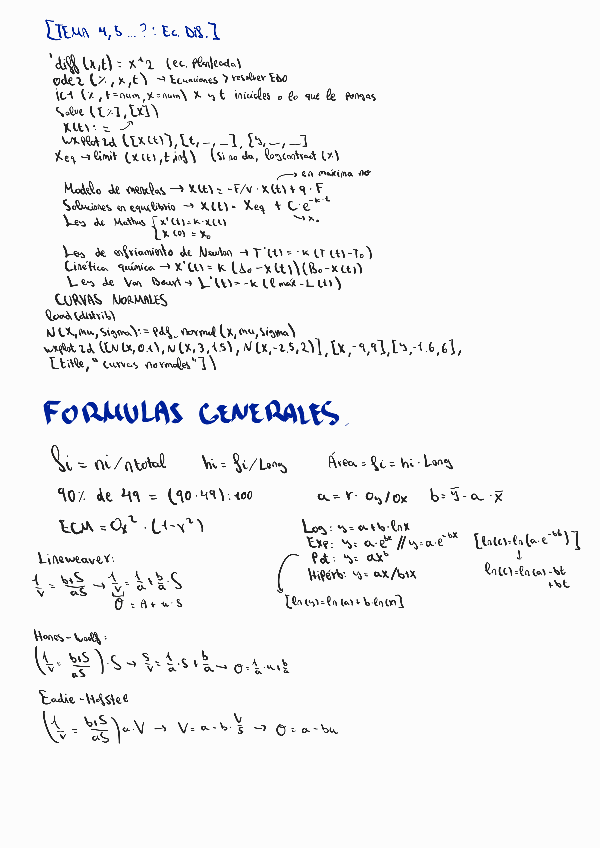 [TEMA 4,5...?: Ec. Dif.]
'diff(x,t) = x^2 (ec. planteada)
ode2 (%, x, t) → Ecuaciones > resolver EDO
ic1 (%, t=num, x=num) x y t iniciales o lo que te pongas
Solve ([%], [x])
x(t) :=
wxplot2d ([x(t)], [t, _, _], [y, _, _]
Xeq → limit (x(t), t, inf) (si no da, logcontract (x)
→ en máxima no
Modelo de mezclas → x(t) = -F/V · x(t) + q · F
Soluciones en equilibrio → x(t) = Xeq + C·e^-k·t
→ x₀
Ley de Malthus { x'(t) = k·x(t)
x(0) = x₀
Ley de enfriamiento de Newton → T'(t) = -k (T(t)-T₀)
Cinética química → x'(t) = k (A₀-x(t))(B₀-x(t))
Ley de Von Bert → L'(t) = -k (lmax - L(t))
CURVAS NORMALES
load(distrib)
N(x,mu,sigma) := pdf_normal (x,mu,sigma)
wxplot2d ([N(x,0,1), N(x,3,1.5), N(x,-2.5,2)], [x,-9,9], [y,-1.6,6],
[title, "curvas normales"])
FORMULAS GENERALES
fi = ni/ntotal hi = fi/Long Área = fi = hi · Long
90% de 49 = (90·49):100 a = r · σy/σx b = ȳ - a · x̄
ECM = σx² · (1-r²)
Log: y = a+b·lnx
Exp: y = a·e^bx // y = a·e^-bx [ln(c)=ln(a·e^-bt)]
Pot: y = ax^b ↓
Hipérb: y = ax/b+x ln(c)=ln(a)-bt
+bt
[ln(y)=ln(a)+b·ln(x)]
Lineweaver:
1/v = b+S/aS → 1/v = 1/a + b/a · S
O = A + u · S
Hanes-Woolf:
(1/v = b+S/aS)·S → S/v = 1/a · S + b/a → O = 1/a · u + b/a
Eadie-Hofstee
(1/v = b+S/aS) a·V → V = a - b · V/S → O = a - bu